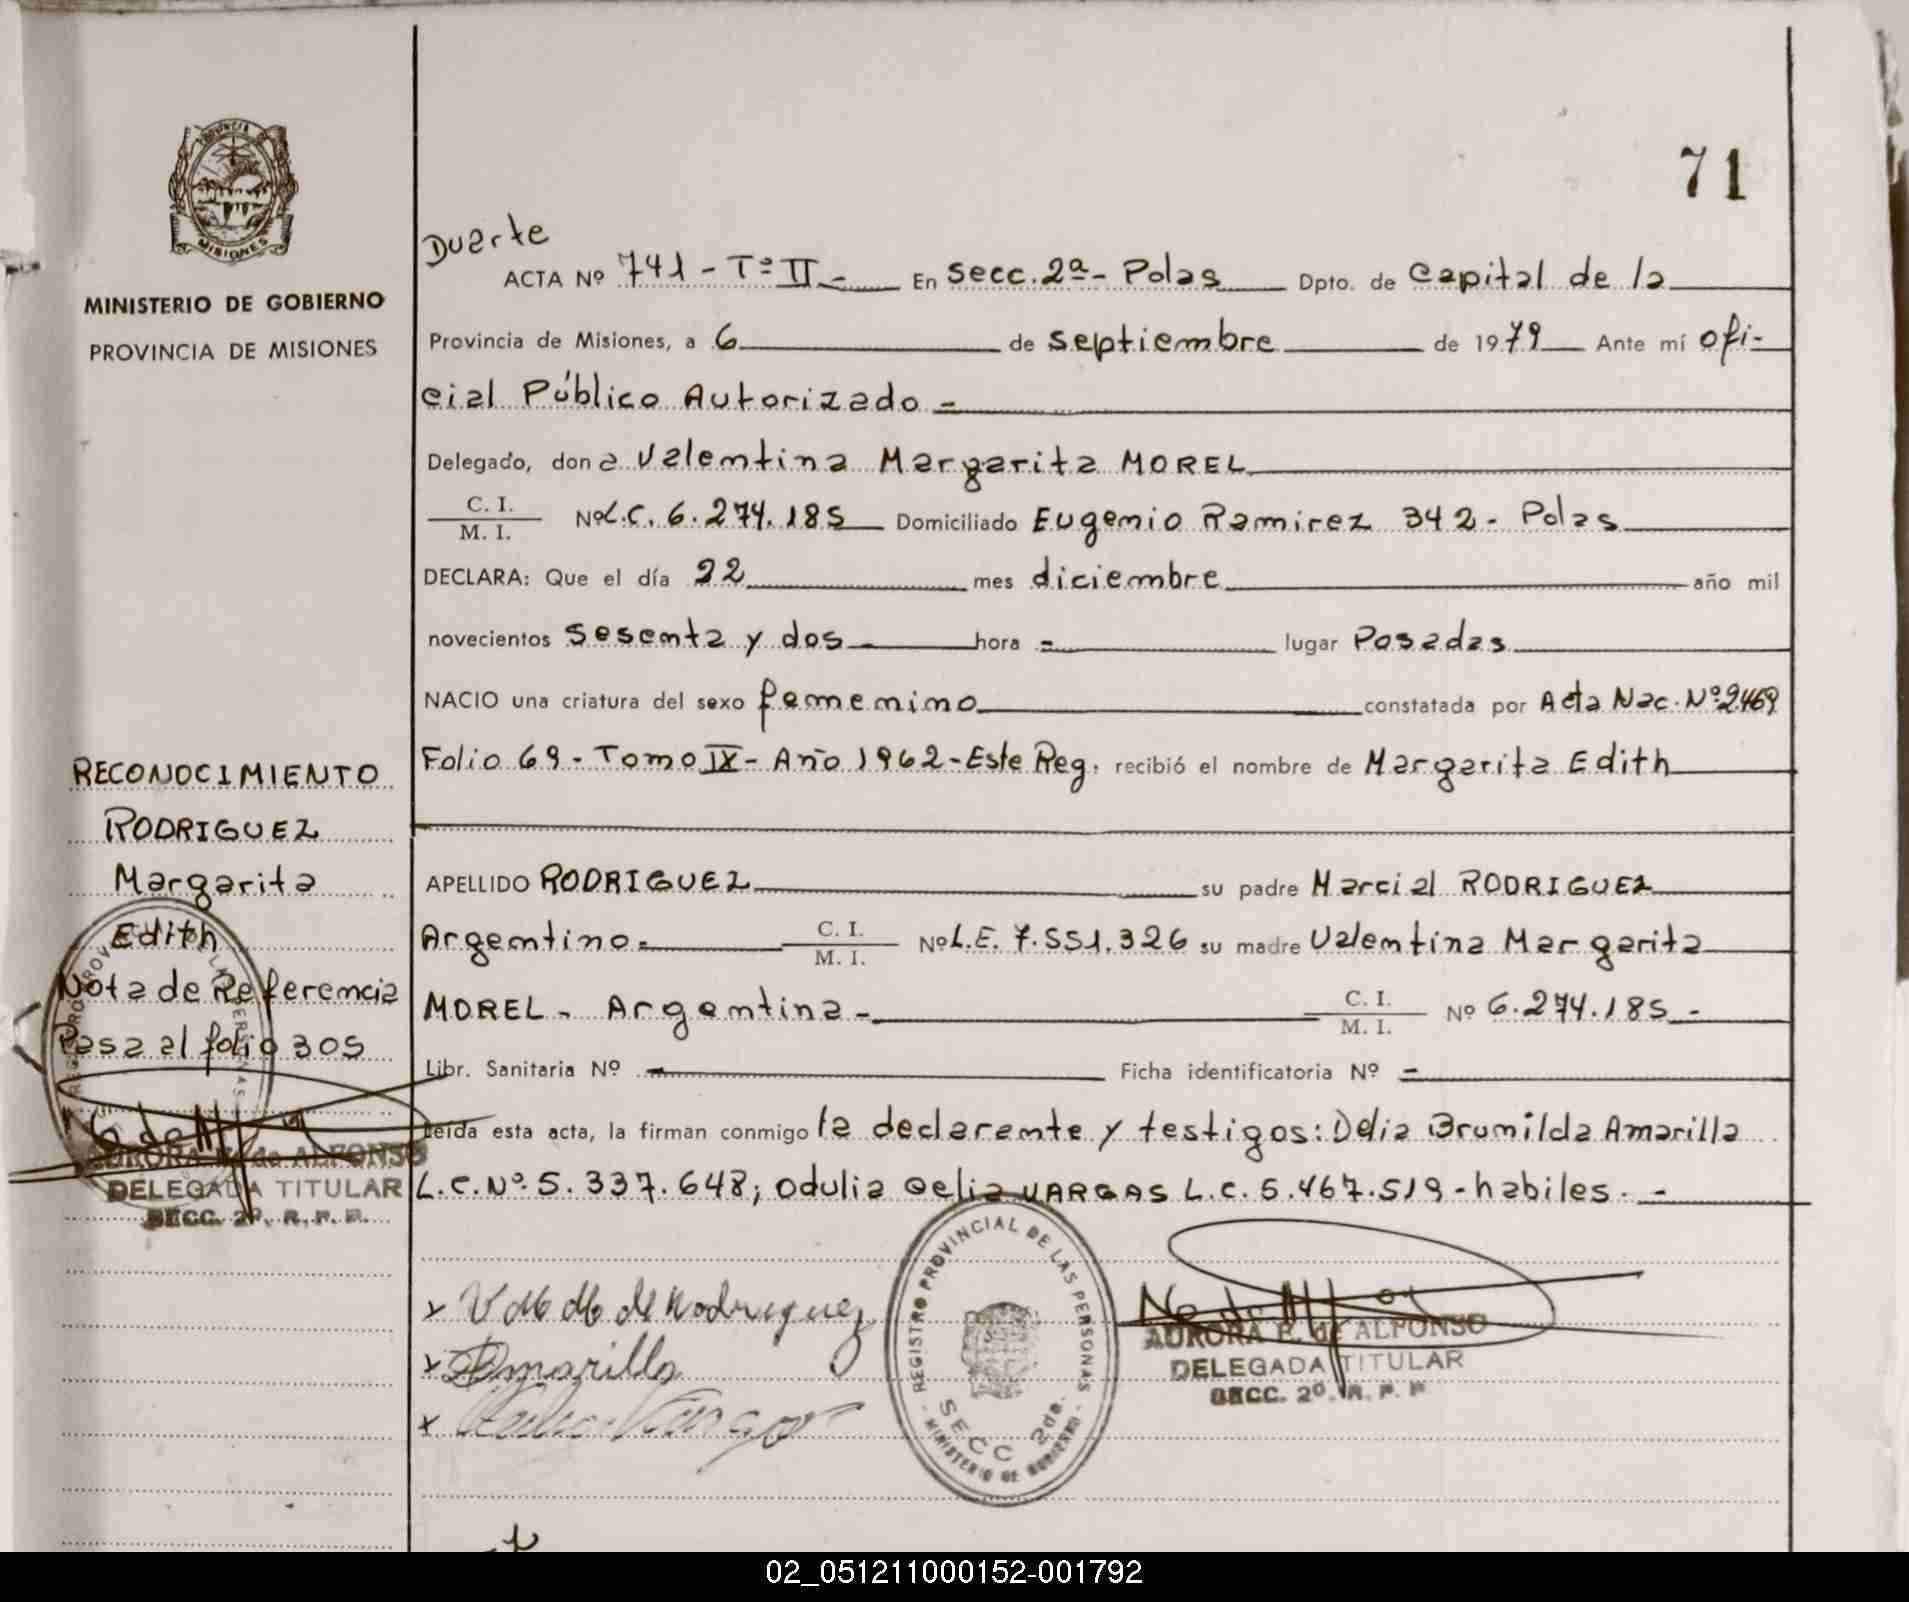 71
PROVINCIA DE
MISIONES
MINISTERIO DE GOBIERNO
PROVINCIA DE MISIONES
Duarte
ACTA Nº 741 - Tº II - En secc. 2ª - Pdas Dpto. de Capital de la
Provincia de Misiones, a 6 de septiembre de 1979 Ante mí ofi-
cial Público Autorizado -
Delegado, don a Valentina Margarita MOREL
C. I.
M. I. Nº L.C. 6.274.185 Domiciliado Eugenio Ramirez 342 - Pdas
DECLARA: Que el día 22 mes diciembre año mil
novecientos sesenta y dos - hora - lugar Posadas
NACIO una criatura del sexo femenino constatada por Acta Nac. Nº 2469
Folio 69 - Tomo IX - Año 1962 - Este Reg. recibió el nombre de Margarita Edith
APELLIDO RODRIGUEZ su padre Marcial RODRIGUEZ
Argentino - C. I.
M. I. Nº L.E. 7.551.326 su madre Valentina Margarita
MOREL - Argentina - C. I.
M. I. Nº 6.274.185 -
Libr. Sanitaria Nº - Ficha identificatoria Nº -
Leída esta acta, la firman conmigo la declarante y testigos: Delia Brumilda Amarilla
L.C. Nº 5.337.648; Odulia Celia VARGAS L.C. 5.467.519 - habiles. -
RECONOCIMIENTO
RODRIGUEZ
Margarita
Edith
Nota de Referencia
Pasa al folio 305
AURORA E. de ALFONSO
DELEGADA TITULAR
SECC. 2º. R. P. P.
x V M de Rodriguez
x Amarilla
x
REGISTRO PROVINCIAL DE LAS PERSONAS
SECC 2da.
MINISTERIO DE GOBIERNO
AURORA E. de ALFONSO
DELEGADA TITULAR
SECC. 2º. R. P. P.
02_051211000152-001792